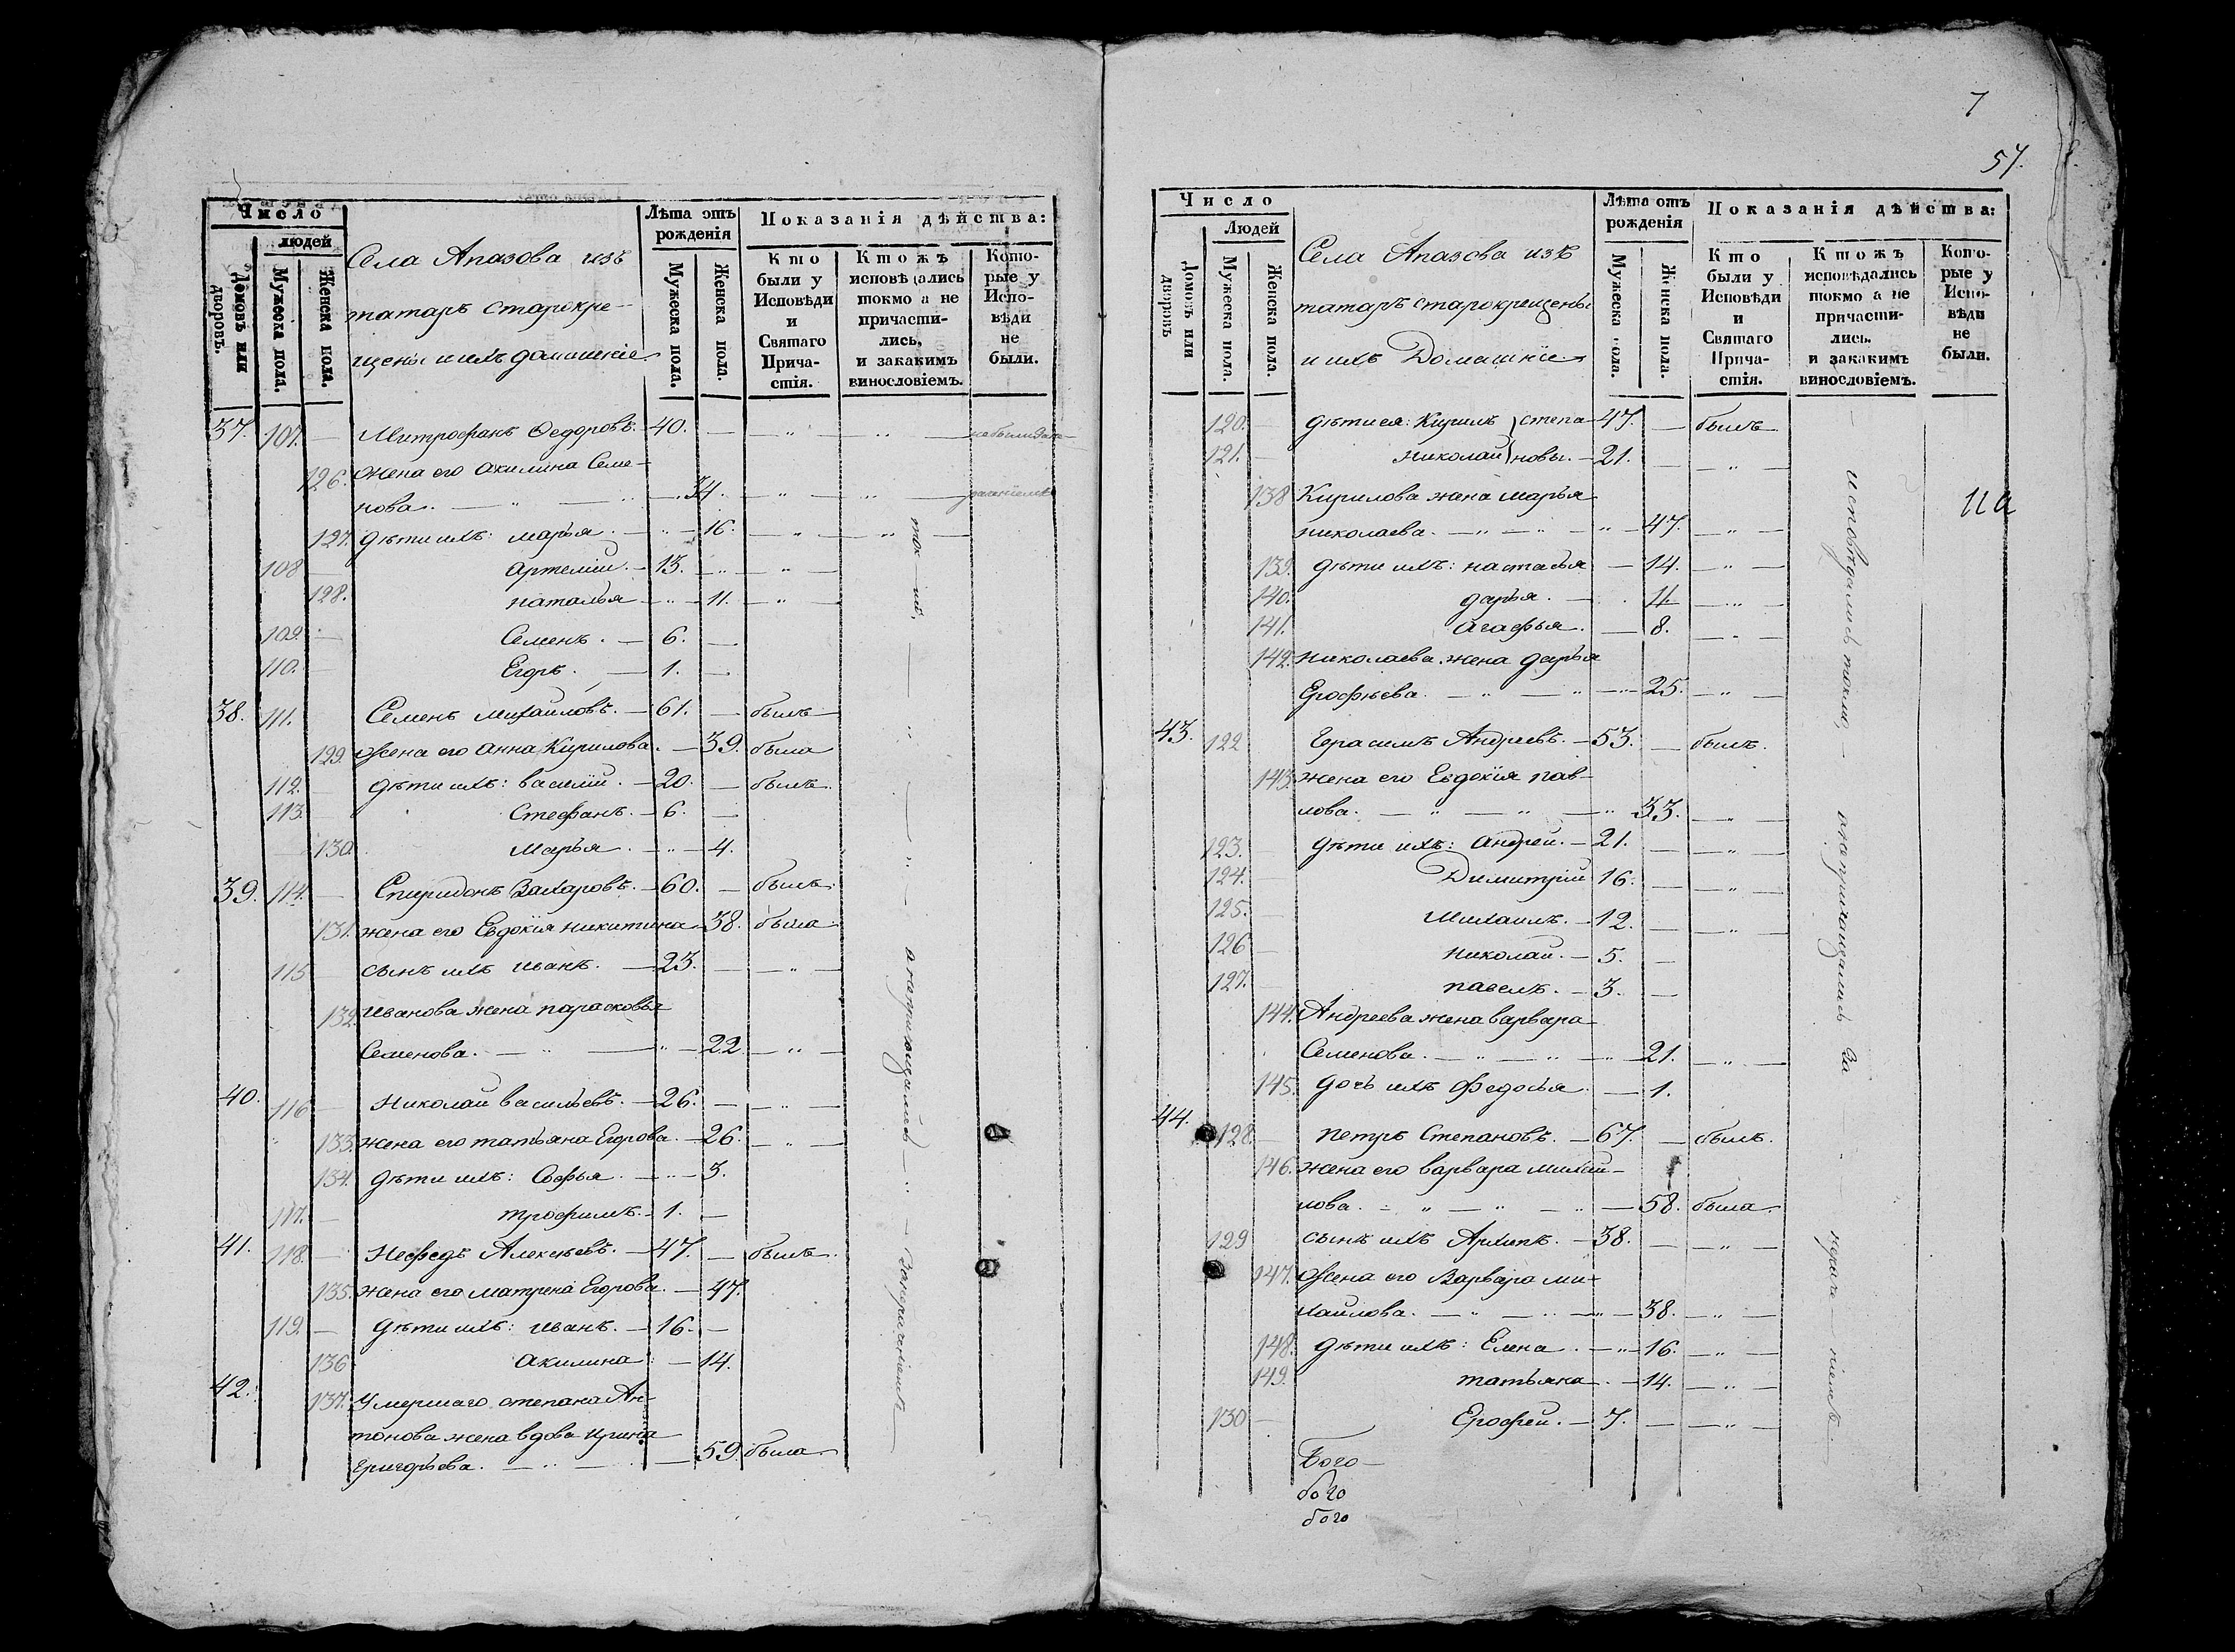 Число
людей
Домовъ или дворовъ.
Мужеска пола.
Женска пола.
Села Апазова изъ
татаръ старокре-
щены и ихъ домашніе
Лѣта отъ рожденія
Мужеска пола.
Женска пола.
Показанія дѣйства:
Кто были у Исповѣди и Святаго Причастія.
Ктожъ исповѣдались токмо а не причастились, и закакимъ винословіемъ.
Которые у Исповѣди не были.
37. 107. — Митрофанъ Ѳедоровъ. — 40. — — „ — „ — не были за не-
126. Жена его Акилина Семе-
нова. — „ — 34. — „ — „ — раченіемъ
127. дѣти ихъ: марья — „ — 16. — „ — „ —
108 — Артемій. — 13. — „ — „ —
128. наталья — „ — 11. — „ —
109. — Семенъ. — 6. —
110. — Егоръ. — 1. —
38. 111. Семенъ михайловъ. — 61. — былъ
129. Жена его Анна Кирилова. — 39. была
112. — дѣти ихъ: василій. — 20. — былъ.
113. — Стефанъ. — 6. —
130. Марья. — „ — 4.
39. 114. — Спиридонъ Захаровъ. — 60. — былъ.
131. жена его Евдокія никитина — 38. была
115 — сынъ ихъ иванъ. — 23. — — „ —
132. иванова жена парасковья
Семенова. — „ — „ — 22. — „ —
40. 116 — Николай васильевъ. — 26. — — „ —
133. жена его татьяна Егорова. — 26. — „ —
134. дѣти ихъ: Софья. — „ — 3.
117. — трофимъ. — 1. —
41. 118. — Нефедъ Алексѣевъ. — 47. — былъ.
135. жена его матрена Егорова. — 47.
119. — дѣти ихъ: иванъ. — 16. —
136 акилина — 14.
42. 137. Умершаго степана Ан-
тонова жена вдова ирина
Григорьева. — „ — 59. была
а непричащались — „ —
7
57.
Число
Людей
Домовъ или дворовъ
Мужеска пола.
Женска пола.
Села Апазова изъ
татаръ старокрещены
и ихъ Домашніе
Лѣта отъ рожденія
Мужеска пола.
Женска пола.
Показанія дѣйства:
Кто были у Исповѣди и Святаго Причастія.
Ктожъ исповѣдались токмо а не причастились. и закакимъ винословіемъ.
Которые у Исповѣди не были.
120. дѣти ея: Кирилъ } степа- 47. — былъ
121. — Николай } новы. — 21. — — „ —
138 Кирилова жена марья
николаева. — „ — „ — „ — 47. — „ —
139. дѣти ихъ: настасья — 14. — „ —
140. дарья. — 11. — „ —
141. Агафья. — 8. — „ —
142. николаева жена дарья
Ерофѣева. — „ — „ — „ — 25. — „ —
43. 122 Герасимъ Андреевъ. — 53. — былъ.
143. жена его Евдокія пав-
лова. — „ — „ — „ 33. — „ —
123. дѣти ихъ: Андрей. — 21. — — „ —
124. — Димитрій 16. — — „ —
125. — Михаилъ. — 12. — — „ —
126 — николай. — 5. —
127. — павелъ. — 3. —
144. Андреева жена варвара
Семенова. — „ — „ — „ — 21. — „ —
145. дочь ихъ Федосья. — 1.
44. 128. — Петръ Степановъ. — 67. — былъ.
146. жена его варвара михаи-
лова. — „ — „ — „ — 58. была.
129 сынъ ихъ Архипъ. — 38. — — „ —
147. Жена его Варвара ми-
хайлова. — „ — „ — „ — 38. — „ —
148. дѣти ихъ: Елена. — „ — 16. — „ —
149. татьяна. — 14. — „ —
130 — Ерофей. — 7. — — „ —
исповѣдались токмо, — а не причащались за нераче — ніемъ
11а
Бого-
бого
бого